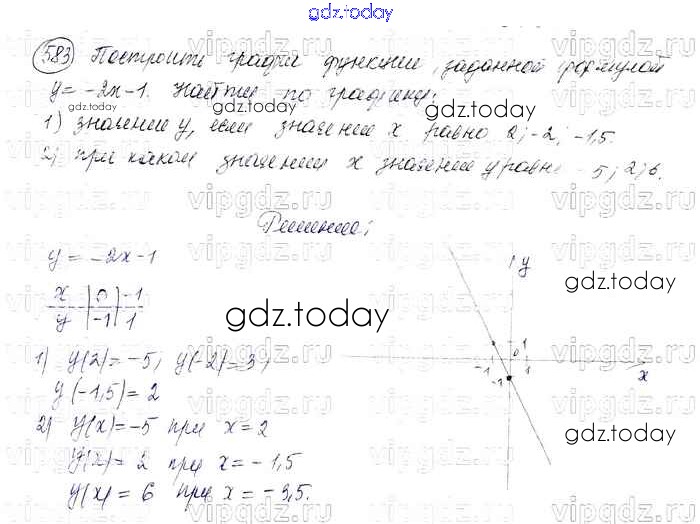 gdz.today
583 Построить график функции, заданной формулой
y = -2x - 1. Найти по графику:
1) значение y, если значение x равно 2; -2; -1,5.
2) при каком значении x значение y равно -5; 2; 6.
Решение:
y = -2x - 1
x | 0 | -1
y | -1 | 1
1) y(2) = -5; y(-2) = 3;
y(-1,5) = 2
2) y(x) = -5 при x = 2
y(x) = 2 при x = -1,5
y(x) = 6 при x = -3,5.
y
1
-1 0 1
-1
x
gdz.today
gdz.today
gdz.today
gdz.today
gdz.today
vipgdz.ru
vipgdz.ru
vipgdz.ru